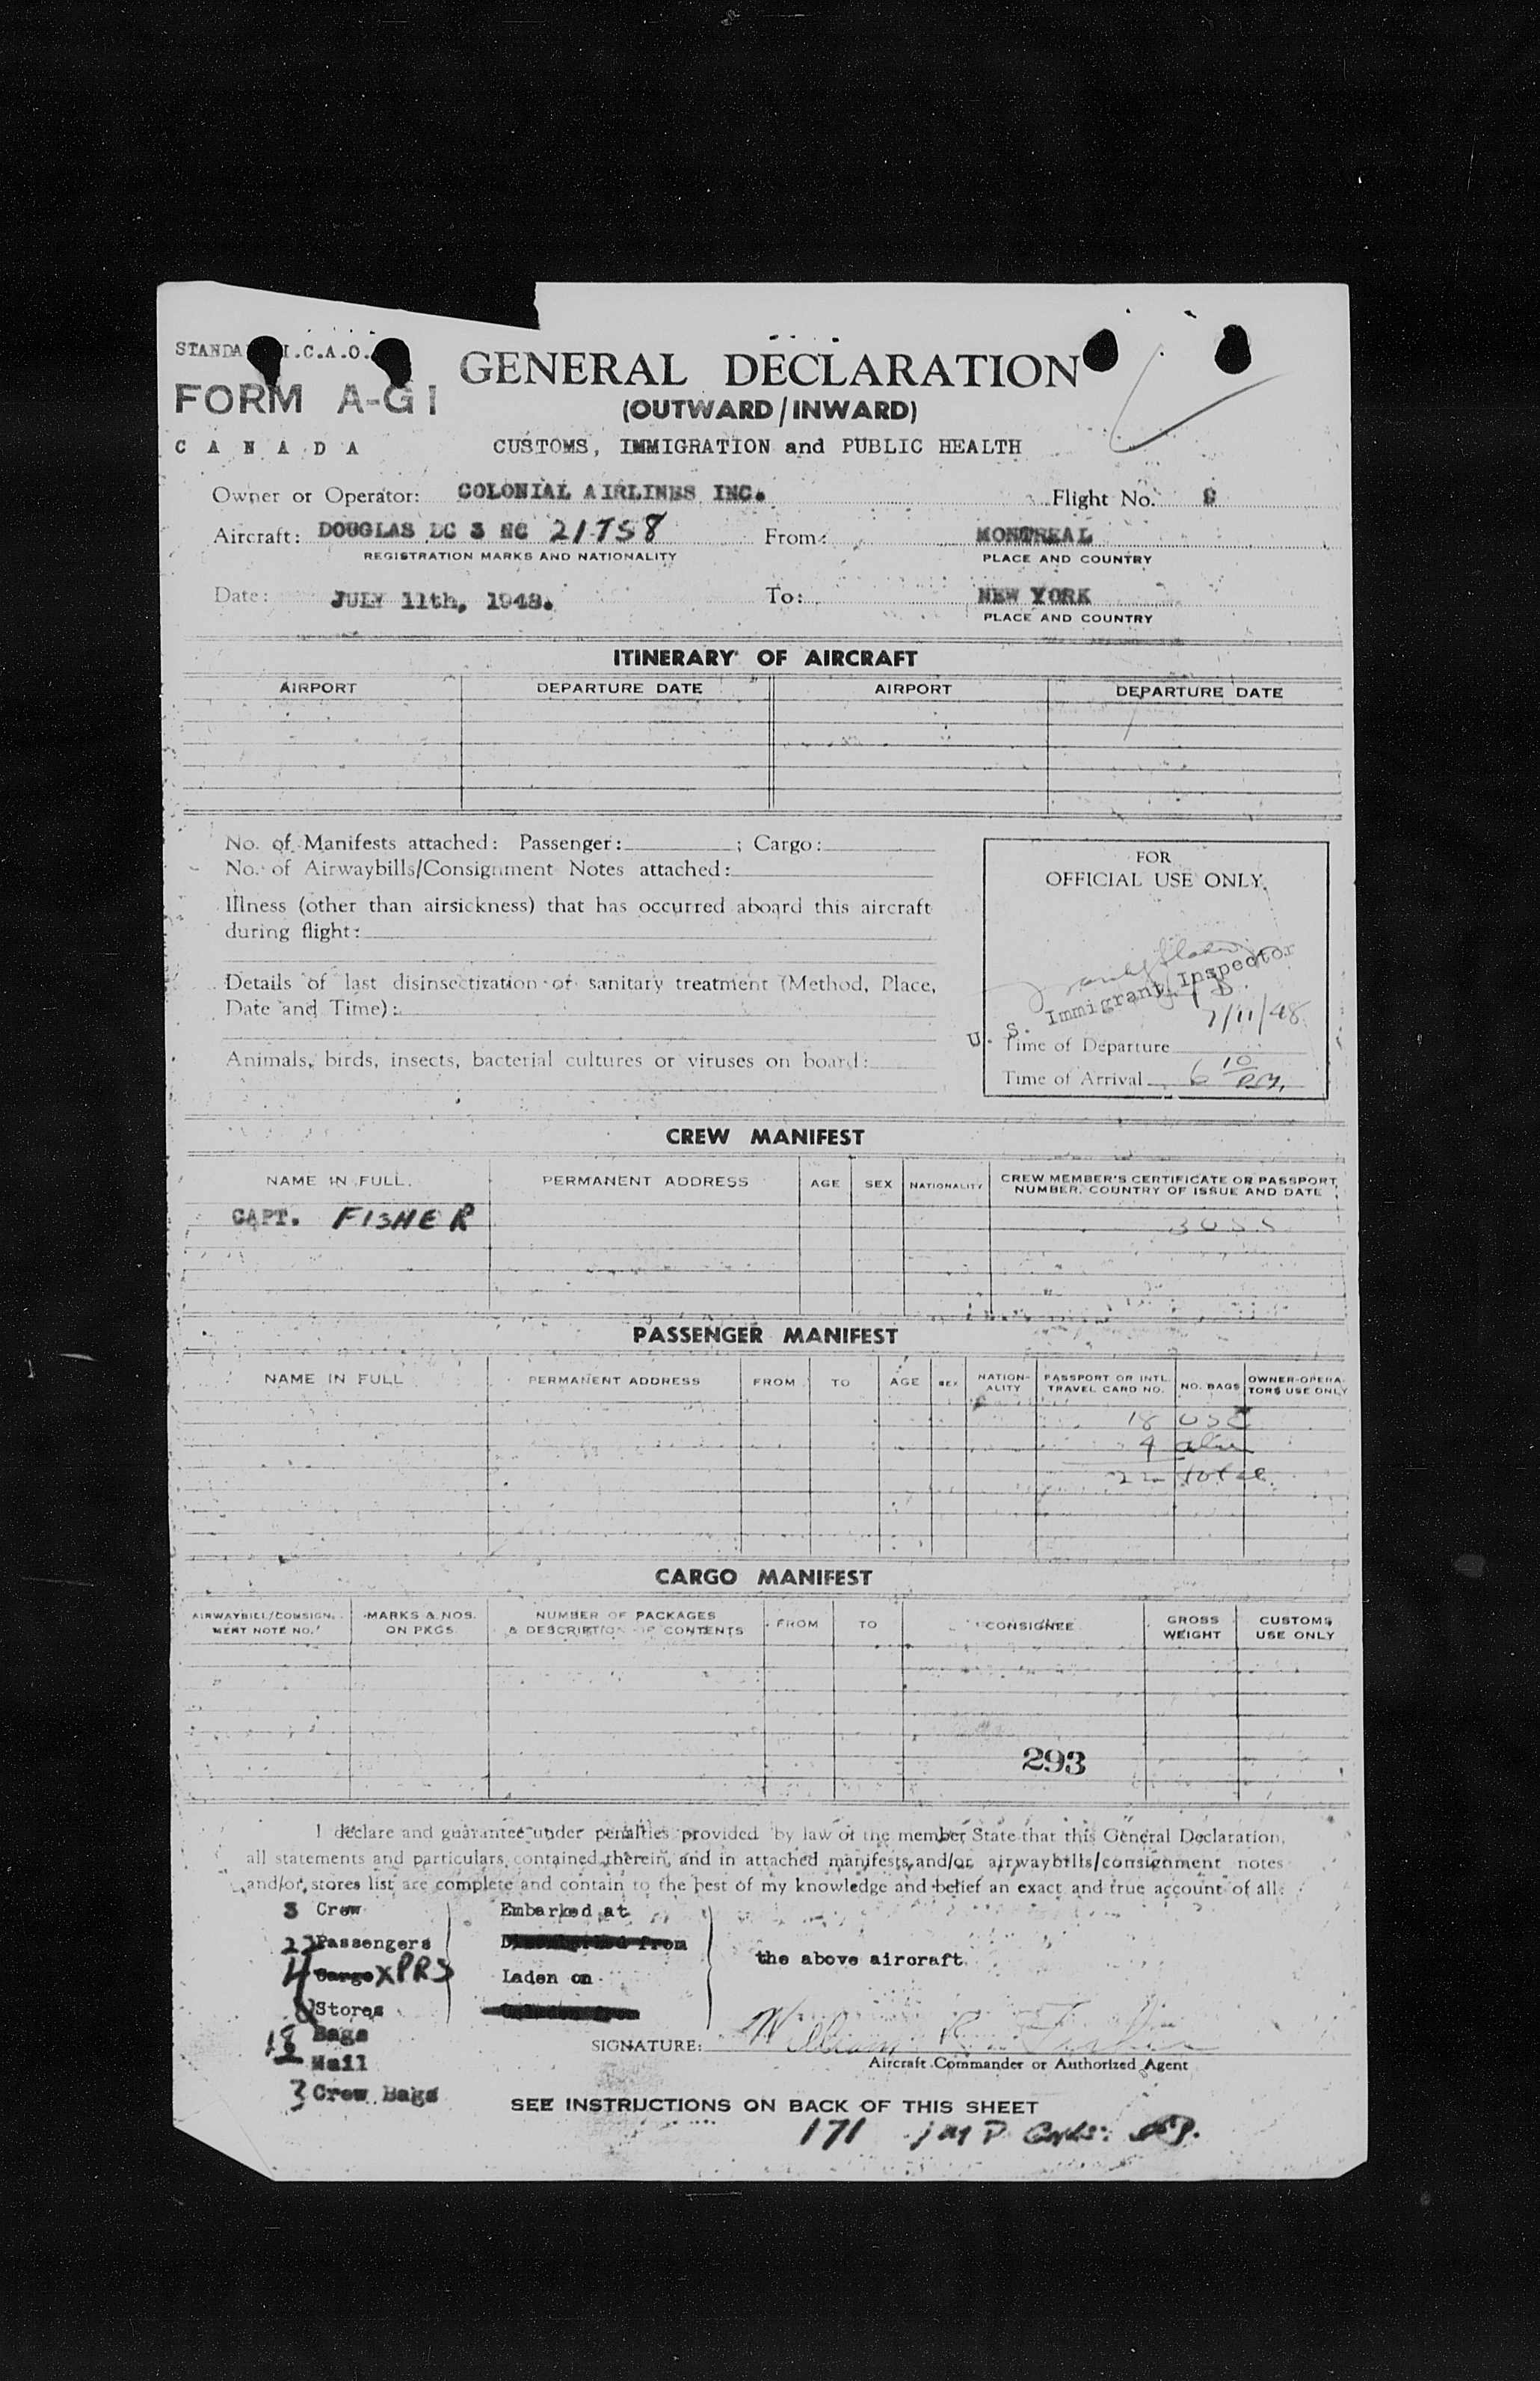 STANDA I.C.A.O.
FORM A-G1
CANADA
GENERAL DECLARATION
(OUTWARD/INWARD)
CUSTOMS, IMMIGRATION and PUBLIC HEALTH
Owner or Operator: COLONIAL AIRLINES INC. Flight No.
Aircraft: DOUGLAS DC 3 NC 21758 From: MONTREAL
REGISTRATION MARKS AND NATIONALITY PLACE AND COUNTRY
Date: JULY 11th, 1948. To: NEW YORK
PLACE AND COUNTRY
ITINERARY OF AIRCRAFT
AIRPORT DEPARTURE DATE AIRPORT DEPARTURE DATE
No. of Manifests attached: Passenger: ; Cargo:
No. of Airwaybills/Consignment Notes attached:
Illness (other than airsickness) that has occurred aboard this aircraft
during flight:
Details of last disinsectization or sanitary treatment (Method, Place,
Date and Time):
Animals, birds, insects, bacterial cultures or viruses on board:
FOR
OFFICIAL USE ONLY
U. S. Immigrant Inspector
7/11/48
Time of Departure
Time of Arrival 6 10 P.M.
CREW MANIFEST
NAME IN FULL PERMANENT ADDRESS AGE SEX NATIONALITY CREW MEMBER'S CERTIFICATE OR PASSPORT NUMBER, COUNTRY OF ISSUE AND DATE
CAPT. FISHER
PASSENGER MANIFEST
NAME IN FULL PERMANENT ADDRESS FROM TO AGE SEX NATION-ALITY PASSPORT OR INTL. TRAVEL CARD NO. NO. BAGS OWNER-OPERA-TORS USE ONLY
18 USC
4 alien
22 total
CARGO MANIFEST
AIRWAYBILL/CONSIGN-MENT NOTE NO. MARKS & NOS. ON PKGS. NUMBER OF PACKAGES & DESCRIPTION OF CONTENTS FROM TO CONSIGNEE GROSS WEIGHT CUSTOMS USE ONLY
293
I declare and guarantee under penalties provided by law of the member State that this General Declaration,
all statements and particulars contained therein, and in attached manifests and/or airwaybills/consignment notes
and/or stores list are complete and contain to the best of my knowledge and belief an exact and true account of all:
3 Crew
22 Passengers
4 Cargo XPRS
Stores
18 Bags
Mail
3 Crew Bags
Embarked at
Disembarked from
Laden on
Unladen from
the above aircraft
SIGNATURE: William R. Fisher
Aircraft Commander or Authorized Agent
SEE INSTRUCTIONS ON BACK OF THIS SHEET
171